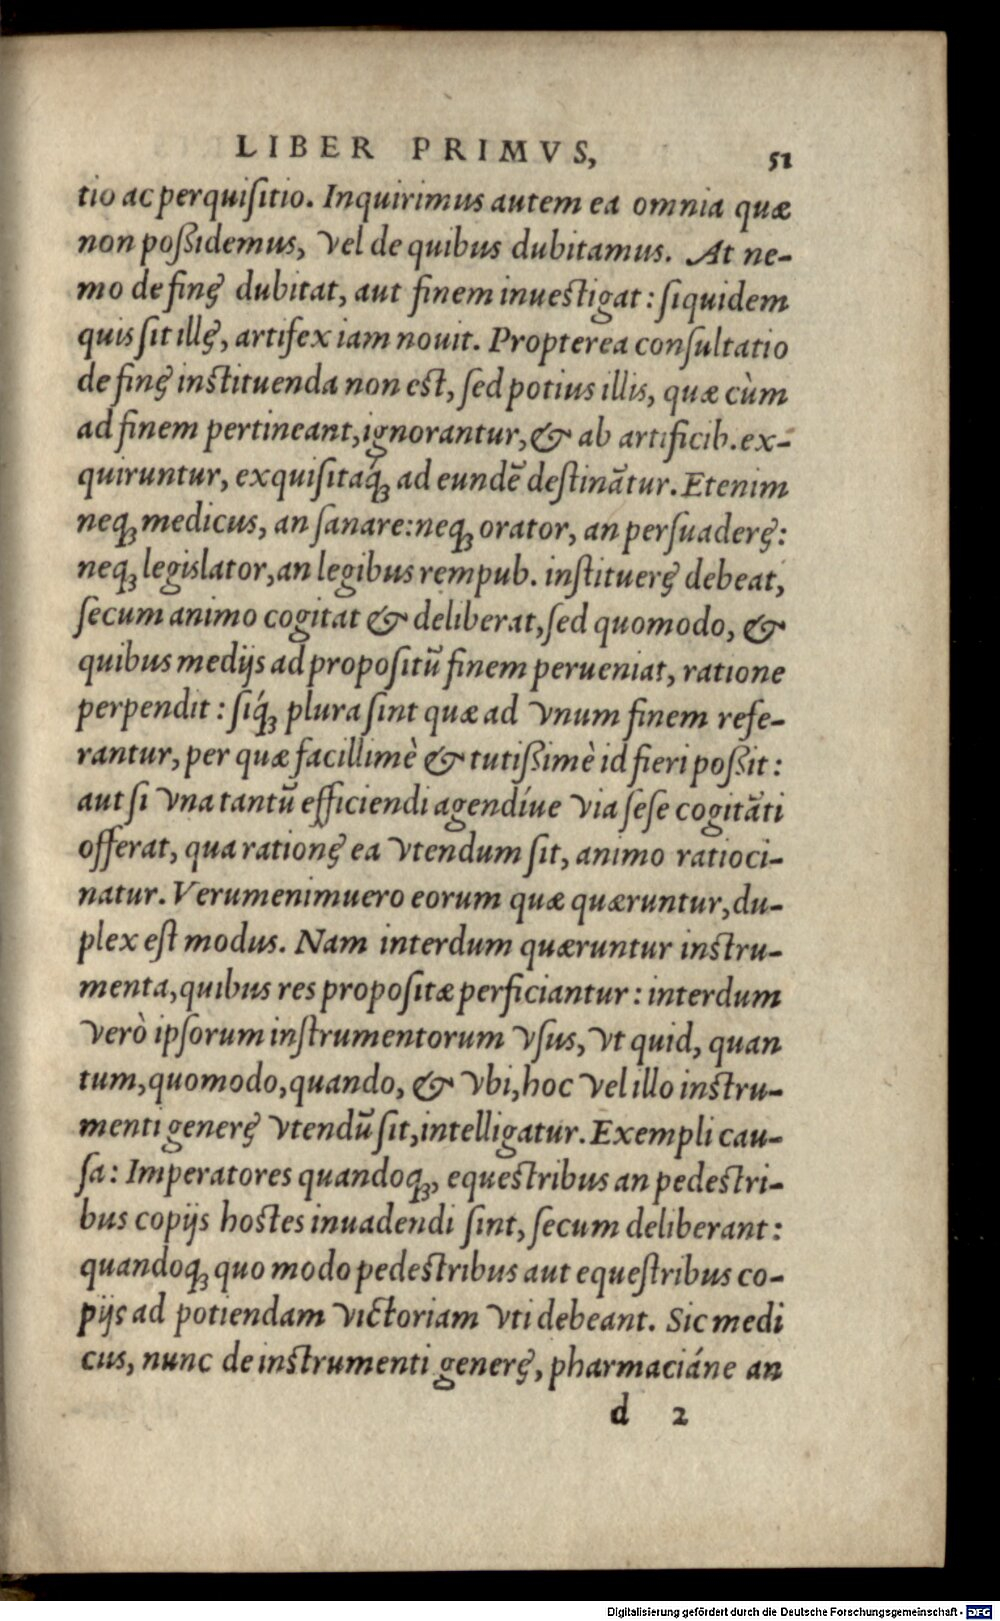 LIBER PRIMVS, 51
tio ac perquiſitio. Inquirimus autem ea omnia quæ
non poßidemus, vel de quibus dubitamus. At ne-
mo de finę dubitat, aut finem inueſtigat : ſiquidem
quis ſit illę, artifex iam nouit. Propterea conſultatio
de finę inſtituenda non eſt, ſed potius illis, quæ cùm
ad finem pertineant, ignorantur, & ab artificib. ex-
quiruntur, exquiſitaq́ꝫ ad eundē deſtinātur. Etenim
neqꝫ medicus, an ſanare: neqꝫ orator, an perſuaderę:
neqꝫ legislator, an legibus rempub. inſtituerę debeat,
ſecum animo cogitat & deliberat, ſed quomodo, &
quibus medijs ad propoſitū finem perueniat, ratione
perpendit : ſiq́ꝫ plura ſint quæ ad vnum finem refe-
rantur, per quæ facillimè & tutißimè id fieri poßit :
aut ſi vna tantū efficiendi agendíue via ſeſe cogitāti
offerat, qua rationę ea vtendum ſit, animo ratioci-
natur. Verumenimuero eorum quæ quæruntur, du-
plex eſt modus. Nam interdum quæruntur inſtru-
menta, quibus res propoſitæ perficiantur : interdum
verò ipſorum inſtrumentorum vſus, vt quid, quan
tum, quomodo, quando, & vbi, hoc vel illo inſtru-
menti generę vtendū ſit, intelligatur. Exempli cau-
ſa : Imperatores quandoqꝫ, equeſtribus an pedeſtri-
bus copijs hoſtes inuadendi ſint, ſecum deliberant :
quandoqꝫ quo modo pedeſtribus aut equeſtribus co-
pijs ad potiendam victoriam vti debeant. Sic medi
cus, nunc de inſtrumenti generę, pharmaciáne an
d 2
Digitalisierung gefördert durch die Deutsche Forschungsgemeinschaft - DFG